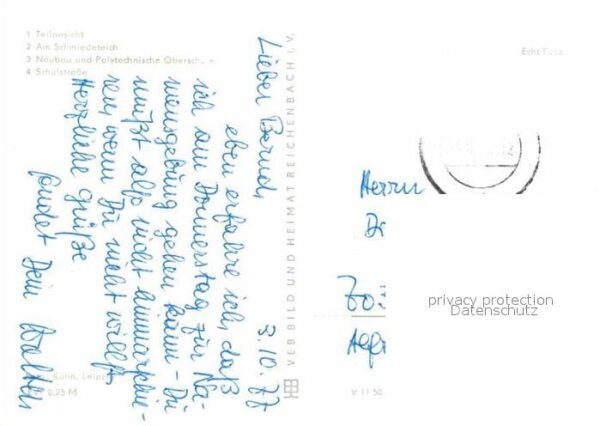 1 Teilansicht
2 Am Schmiedeteich
3 Neubau und Polytechnische Obersch
4 Schulstraße
3.10.77
Lieber Bernd,
eben erfahre ich, daß
ich am Donnerstag für Na-
mensgebung gehen kann - Du
mußt also nicht hinmarschie-
ren, wenn Du nicht willst.
Herzliche Grüße
sendet Dein Walter
Kühn, Leipz
0,25 M
VEB BILD UND HEIMAT REICHENBACH I. V.
V 11 50
Echt Foto
12
Herrn
privacy protection
Datenschutz